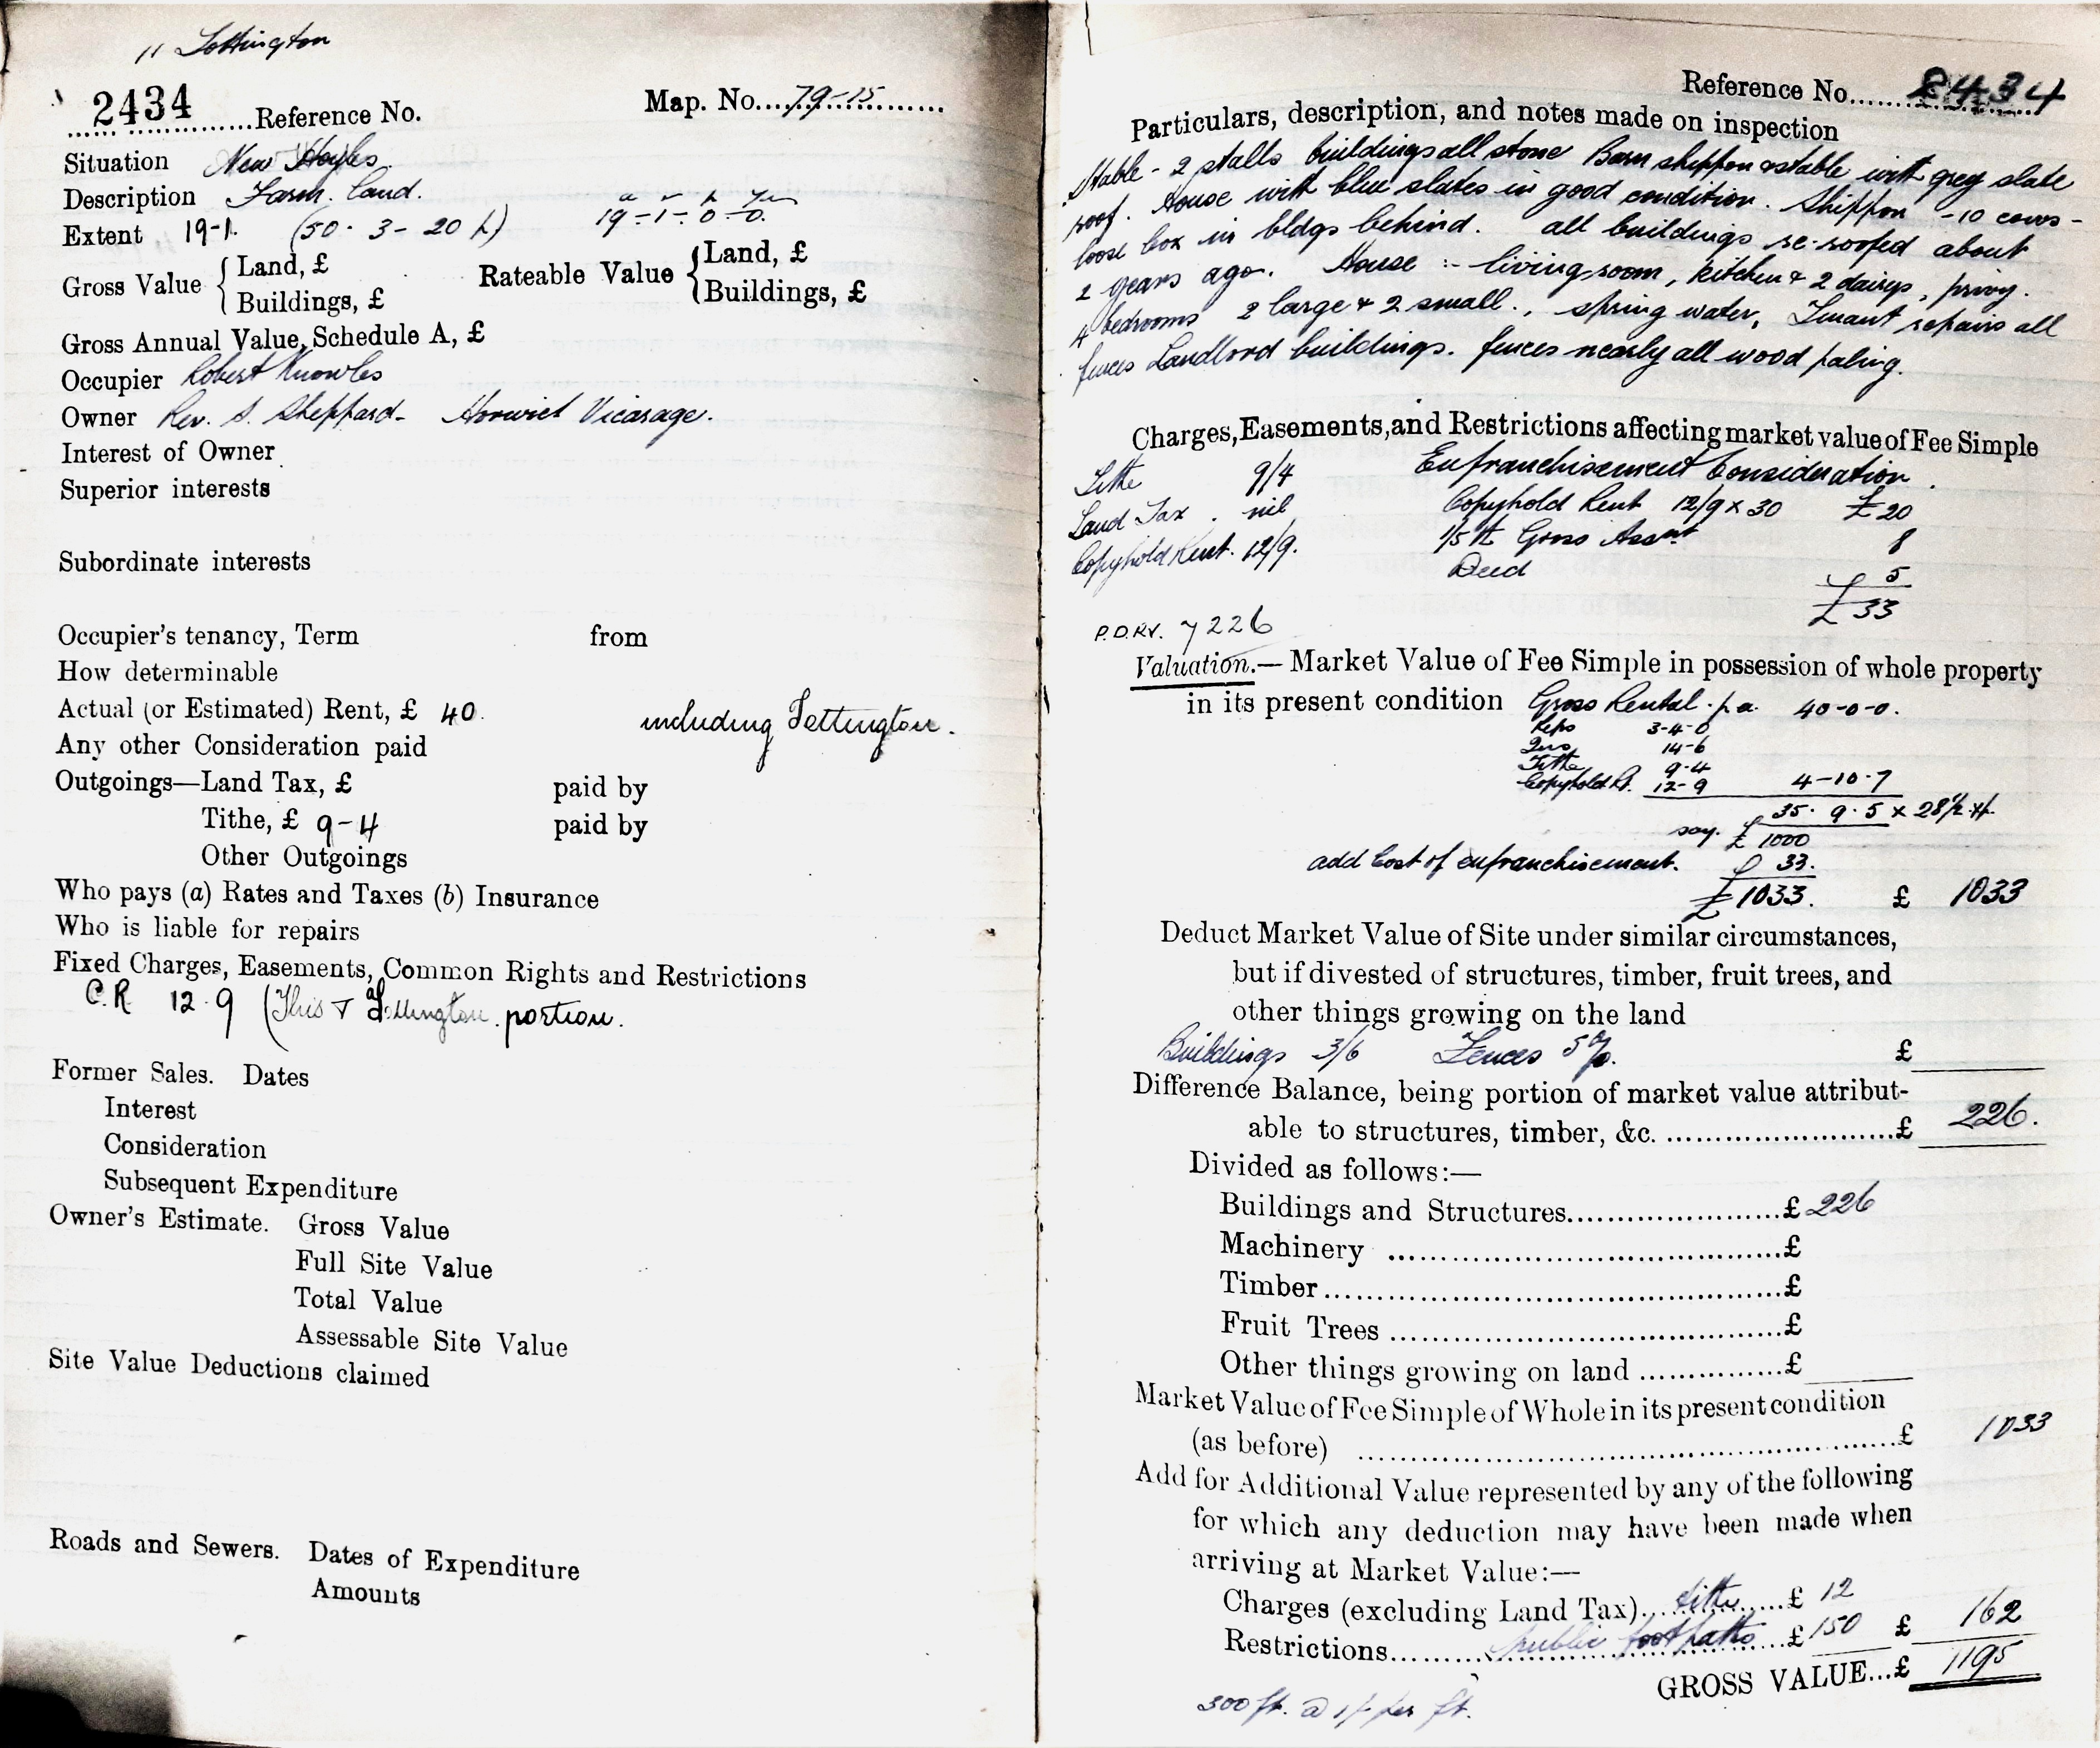 11 Tottington
2434 Reference No. Map. No. 79-15
Situation New Hoyles
Description Farm. Land.
a r p yds
Extent 19-1. (50 - 3 - 20 ) 19 - 1 - 0 - 0.
Gross Value { Land, £ Rateable Value { Land, £
Buildings, £ Buildings, £
Gross Annual Value, Schedule A, £
Occupier Robert Knowles
Owner Rev. S. Sheppard - Horwich Vicarage.
Interest of Owner
Superior interests
Subordinate interests
Occupier's tenancy, Term from
How determinable
Actual (or Estimated) Rent, £ 40. including Tottington.
Any other Consideration paid
Outgoings—Land Tax, £ paid by
Tithe, £ 9-4 paid by
Other Outgoings
Who pays (a) Rates and Taxes (b) Insurance
Who is liable for repairs
Fixed Charges, Easements, Common Rights and Restrictions
C.R 12.9 (This & Tottington portion.
Former Sales. Dates
Interest
Consideration
Subsequent Expenditure
Owner's Estimate. Gross Value
Full Site Value
Total Value
Assessable Site Value
Site Value Deductions claimed
Roads and Sewers. Dates of Expenditure
Amounts
Reference No. 2434
Particulars, description, and notes made on inspection
Stable - 2 stalls buildings all stone Barn shippon & stable with grey slate
roof. House with blue slates in good condition. Shippon - 10 cows -
loose box in bldgs behind. all buildings re-roofed about
2 years ago. House :- living room, kitchen & 2 dairys, privy.
4 bedrooms 2 large & 2 small., spring water, Tenant repairs all
fences Landlord buildings. fences nearly all wood paling.
Charges, Easements, and Restrictions affecting market value of Fee Simple
Tithe 9/4 Enfranchisement Consideration.
Land Tax . nil Copyhold Rent 12/9 x 30 £20
Copyhold Rent. 12/9. 1/5th Gross Assmt 8
Deed 5
£33
P.D.R.V. 7226
Valuation.— Market Value of Fee Simple in possession of whole property
in its present condition Gross Rental. p.a. 40-0-0.
Reps 3-4-0
Ins 14-6
Tithe 9-4
Copyhold R. 12-9 4-10-7
35. 9. 5 x 28½
say. £1000
add Cost of enfranchisement. £ 33.
£1033. £ 1033
Deduct Market Value of Site under similar circumstances,
but if divested of structures, timber, fruit trees, and
other things growing on the land
Buildings 3/6 Fences 5% £
Difference Balance, being portion of market value attribut-
able to structures, timber, &c. £ 226.
Divided as follows:—
Buildings and Structures £ 226
Machinery £
Timber £
Fruit Trees £
Other things growing on land £
Market Value of Fee Simple of Whole in its present condition
(as before) £ 1033
Add for Additional Value represented by any of the following
for which any deduction may have been made when
arriving at Market Value:—
Charges (excluding Land Tax) tithe £ 12
Restrictions public footpaths £ 150 £ 162
GROSS VALUE...£ 1195
300 ft. @ 1/- per ft.